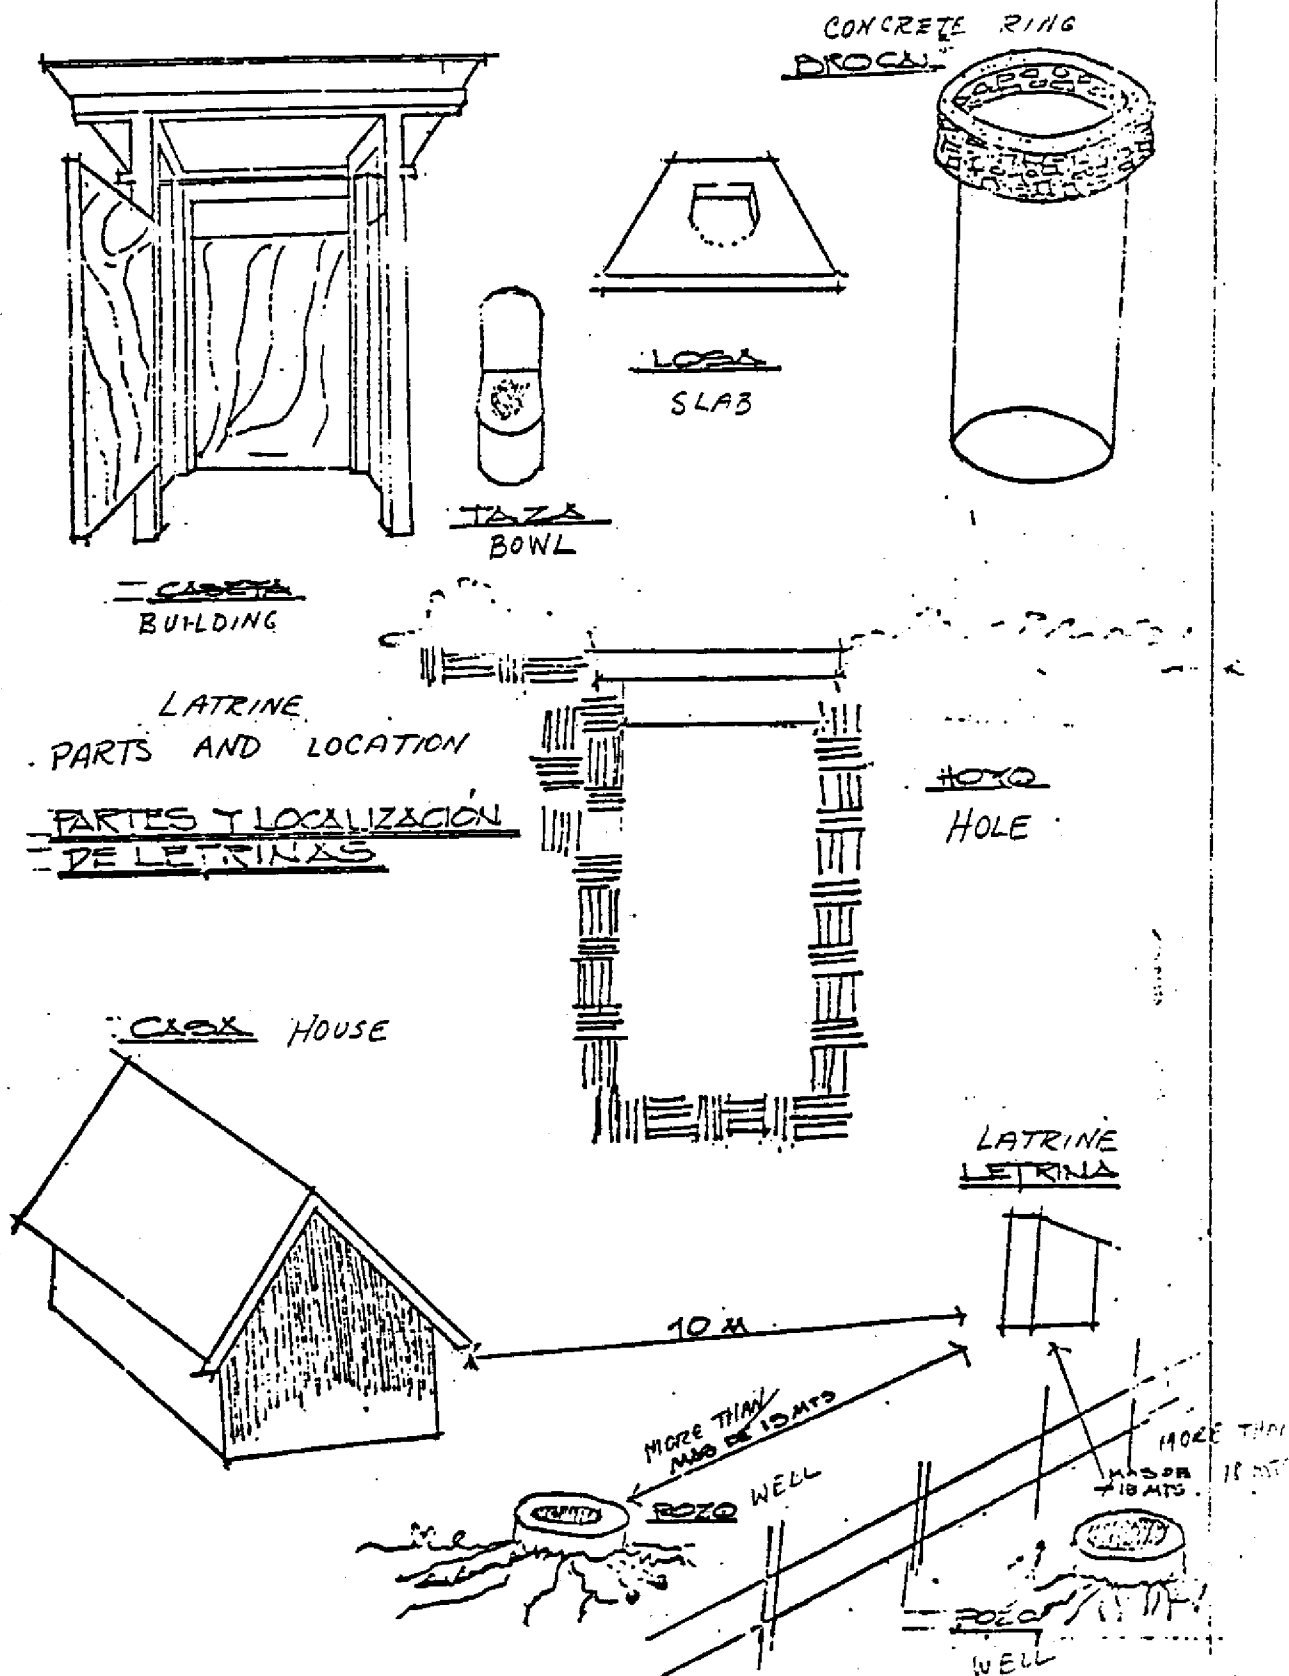 CONCRETE RING
BROCAL
LOSA
SLAB
TAZA
BOWL
CASETA
BUILDING
LATRINE
PARTS AND LOCATION
PARTES Y LOCALIZACIÓN
DE LETRINAS
HOYO
HOLE
CASA HOUSE
LATRINE
LETRINA
10 M
MORE THAN
MAS DE MTS
POZO WELL
MORE THAN
MAS DE 18 MTS
18 MTS
POZO
WELL